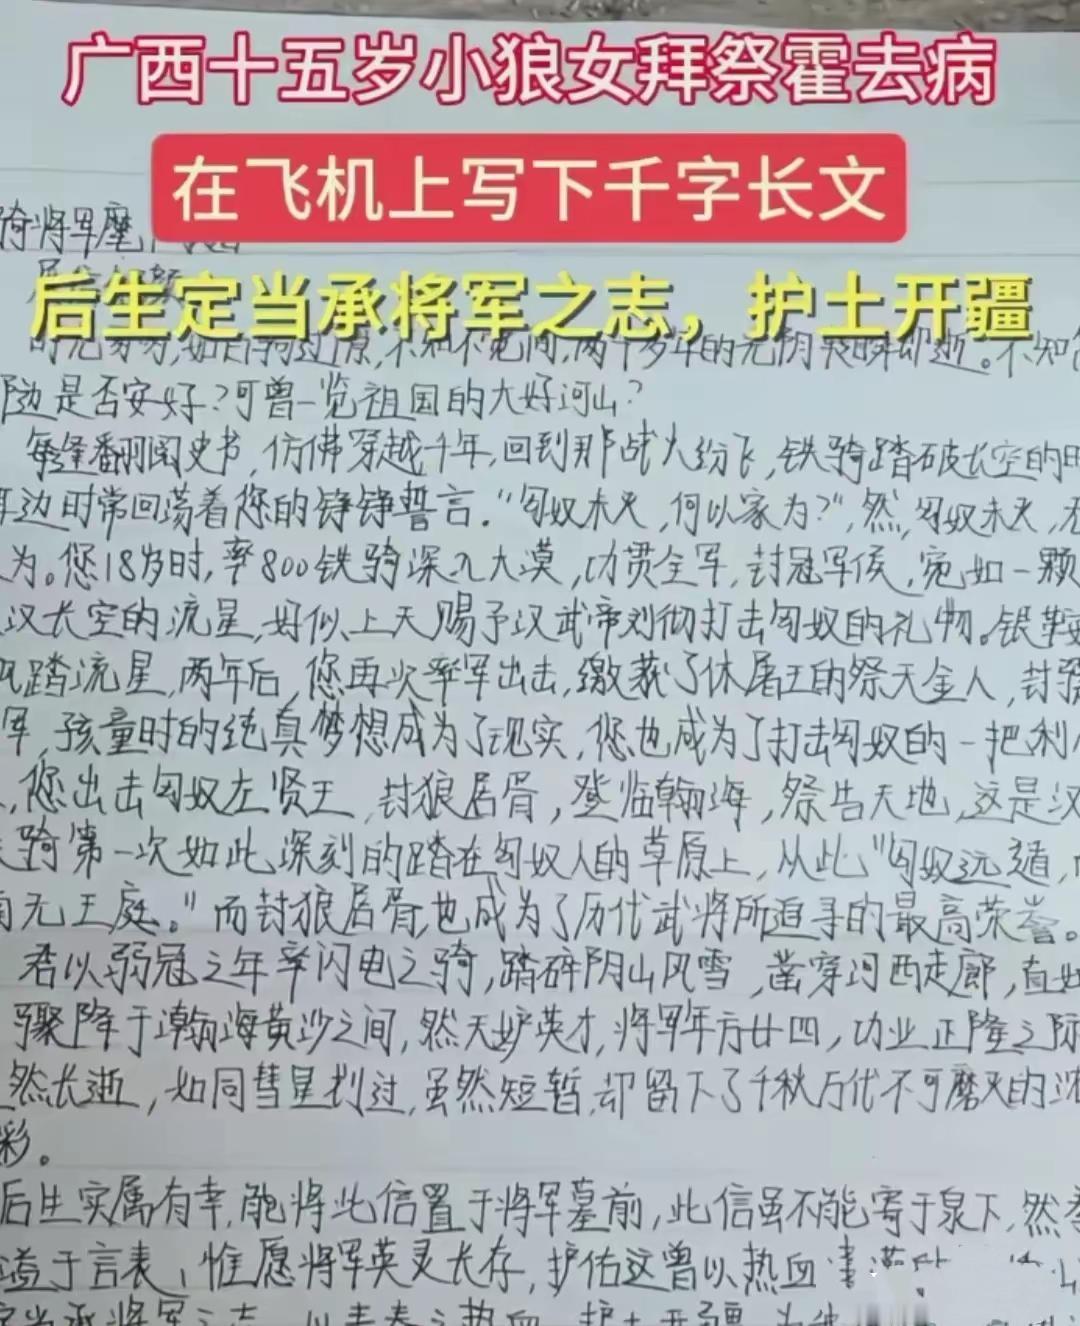 广西十五岁小狼女拜祭霍去病
在飞机上写下千字长文
骑将军麾
后生定当承将军之志，护土开疆
时光匆匆，如白驹过隙，不知不觉间，两千多年的光阴转瞬即逝。不知
那边是否安好？可曾一览祖国的大好河山？
每逢翻阅史书，仿佛穿越千年，回到那战火纷飞，铁骑踏破长空的时
耳边时常回荡着您的铮铮誓言。“匈奴未灭，何以家为？”，然，匈奴未灭，无
为。您18岁时，率800铁骑深入大漠，功贯全军，封冠军侯，宛如一颗
汉长空的流星，好似上天赐予汉武帝刘彻打击匈奴的礼物。银鞍
飒踏流星，两年后，您再次率军出击，缴获了休屠王的祭天金人，封骠
军，孩童时的纯真梦想成为了现实，您也成为了打击匈奴的一把利
，您出击匈奴左贤王，封狼居胥，登临瀚海，祭告天地，这是汉
骑第一次如此深刻的踏在匈奴人的草原上，从此“匈奴远遁，
南无王庭。”而封狼居胥，也成为了历代武将所追寻的最高荣誉。
君以弱冠之年率闪电之骑，踏碎阴山风雪，凿穿河西走廊，直如
骤降于瀚海黄沙之间，然天妒英才，将军年方廿四，功业正隆之际
然长逝，如同彗星划过，虽然短暂，却留下了千秋万代不可磨灭的浓
彩。
后生实属有幸，能将此信置于将军墓前，此信虽不能寄于泉下，然
溢于言表，惟愿将军英灵长存，护佑这曾以热血
定当承将军之志，以青春之热血，护土开疆，为